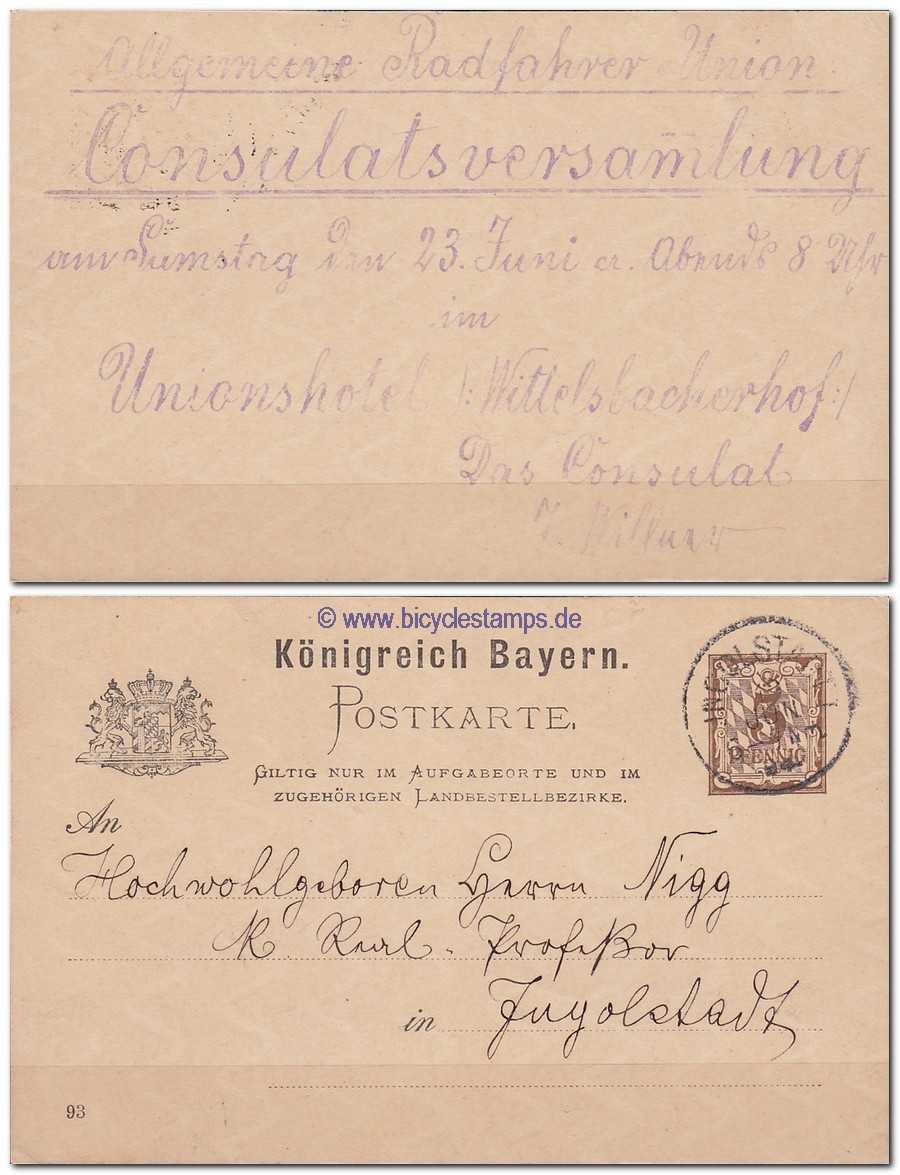 Allgemeine Radfahrer Union
Consulatsversam̅lung
am Samstag den 23. Juni a. Abends 8 Uhr
im
Unionshotel /:Wittelsbacherhof:/
Das Consulat
Willner
© www.bicyclestamps.de
Königreich Bayern.
POSTKARTE.
GILTIG NUR IM AUFGABEORTE UND IM
ZUGEHÖRIGEN LANDBESTELLBEZIRKE.
INGOLSTADT
JUN
PFENNIG
An
Hochwohlgeboren Herrn Nigg
K. Real-Profeßor
in Ingolstadt
93